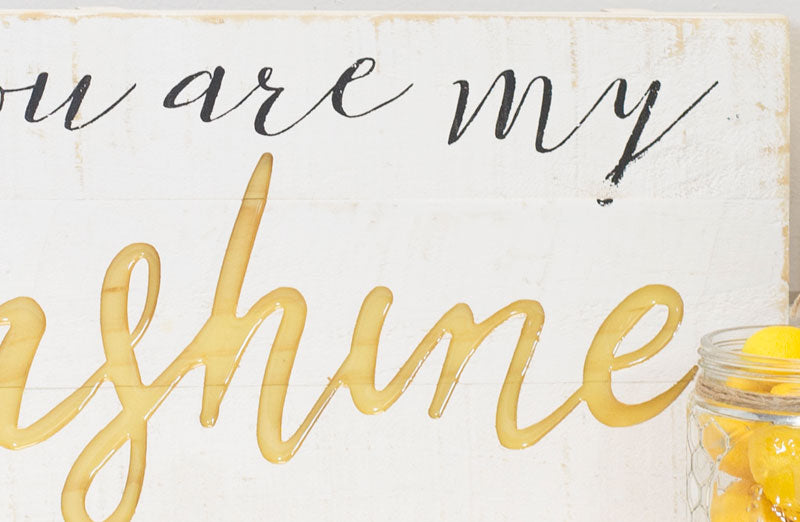 ou are my
nshine